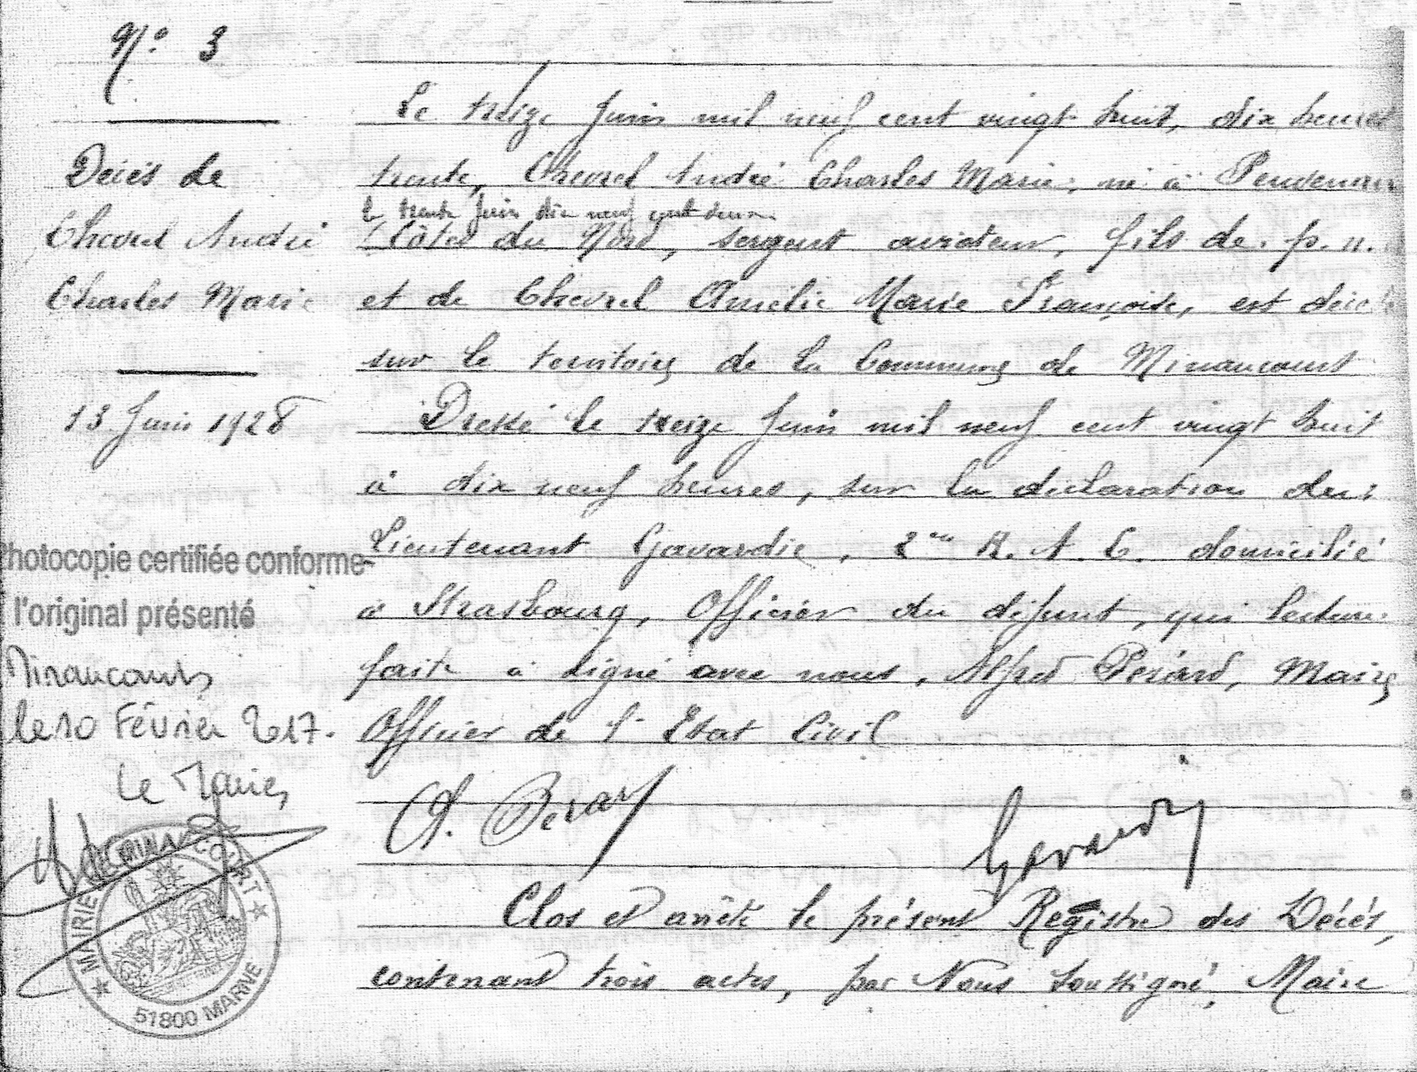 N° 3
Décès de
Chevrel André
Charles Marie
13 Juin 1928
Le treize Juin mil neuf cent vingt huit, dix heures
trente, Chevrel André Charles Marie, né à Penvenan
le trente Juin dix neuf cent
(Côtes du Nord, sergent aviateur, fils de p. n.
et de Chevrel Amélie Marie Françoise, est décédé
sur le territoire de la Commune de Minaucourt
Dressé le treize Juin mil neuf cent vingt huit
à dix neuf heures, sur la déclaration du
Lieutenant Gavardie, 2me R. A. C. domicilié
à Strasbourg, Officier du défunt, qui lecture
faite à signé avec nous, Alfred Pérard, Maire
Officier de l'Etat Civil
Clos et arrêté le présent Registre des Décès,
contenant trois actes, par Nous soussigné, Maire
Photocopie certifiée conforme
l'original présenté
Minaucourt
le 10 Février 2017.
Le Maire,
MAIRIE MINAUCOURT
51800 MARNE